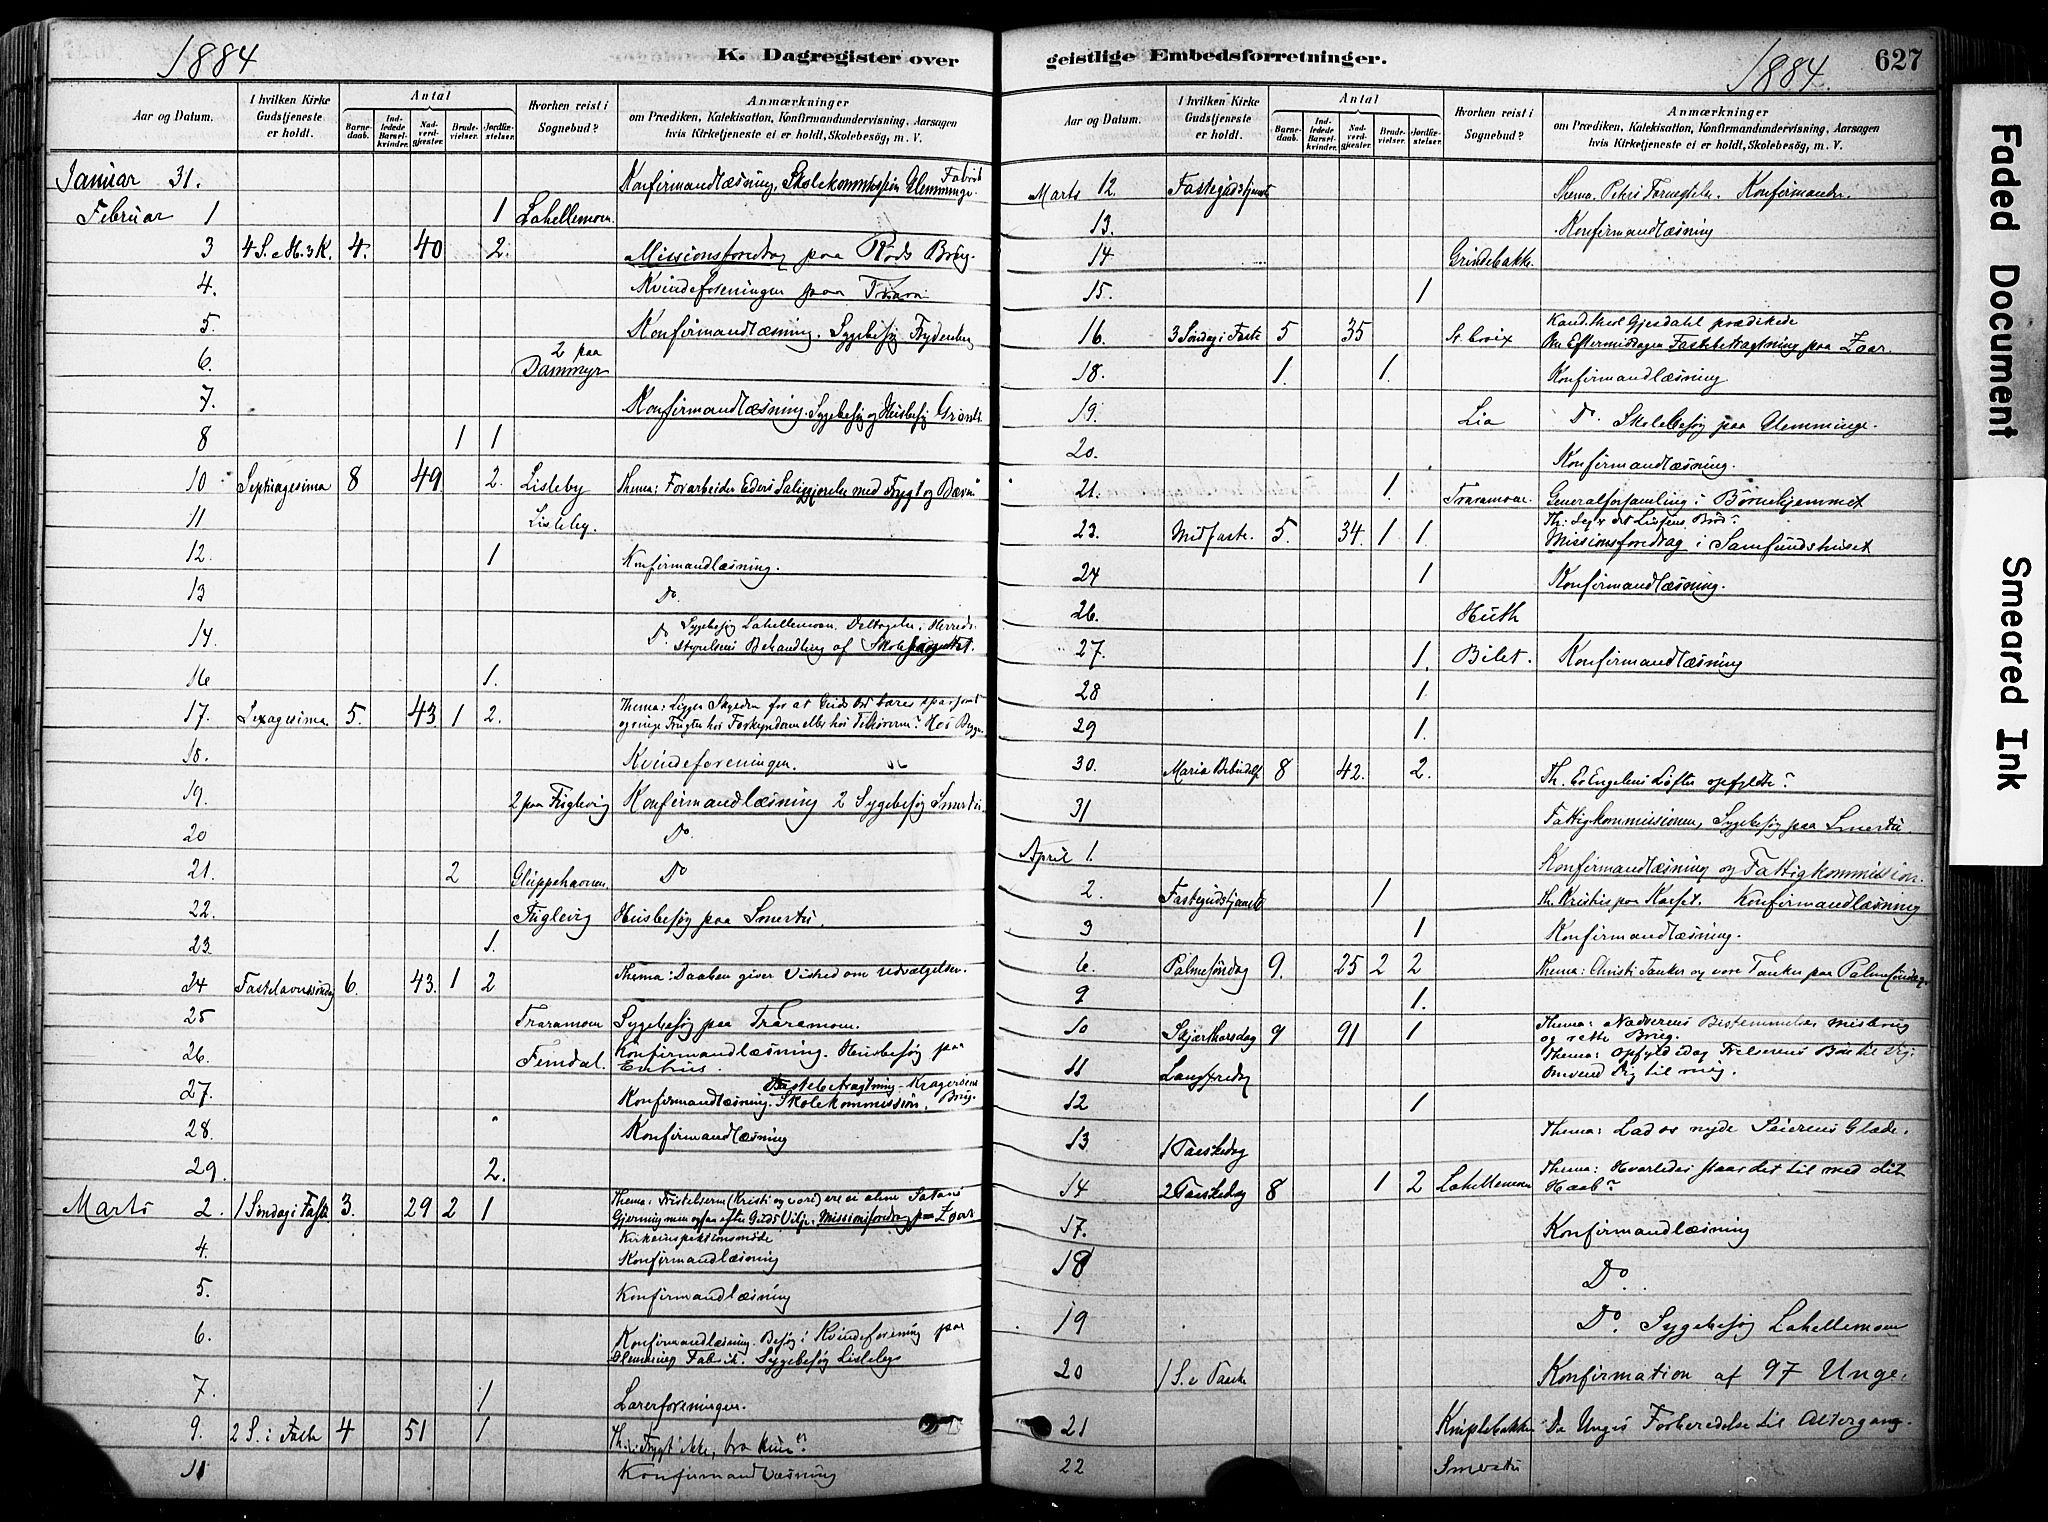 1884
K. Dagregister over
Aar og Datum.
I hvilken Kirke Gudstjeneste er holdt.
Antal
Barnedaab.
Indledede Barselkvinder.
Nadverdgjester.
Brudevielser.
Jordfæstelser.
Hvorhen reist i Sognebud?
Anmærkninger
om Prædiken, Katekisation, Konfirmandundervisning, Aarsagen
hvis Kirketjeneste ei er holdt, Skolebesøg, m. V.
Januar 31. Konfirmandlæsning, Skolekommission Glemminge Fabrik
Februar 1 1 Lahellemoen
3 4 S. e. H. 3 K. 4. 40 2. Missionsforedrag paa Røds Brug.
4. Kvindeforeningen paa Trara
5. Konfirmandlæsning. Sygebesøg Frydenberg
6. 2 paa Dammyr
7. Konfirmandlæsning. Sygebesøg og Husbesøg Grønli.
8 1 1
10 Septuagesima 8 49 2. Lisleby Thema: Forarbeider Eders Saliggjørelse med Frygt og Bæven"
11 Lisleby.
12 1 Konfirmandlæsning.
13 Do.
14. Do. Sygebesøg Lahellemoen. Deltagelse i Herreds-
styrelsens Behandling af
16 1.
17. Sexagesima 5. 43 1 2. Thema: Ligger Skylden for at Guds Ord bærer sparsomt
og ringe Frugter hos Forkynderen eller hos Tilhøreren?
18. Kvindeforeningen.
19. 2 paa Fuglevig Konfirmandlæsning 2 Sygebesøg Smertu.
20 Do.
21. 2 Gluppehavnen Do
22. Fuglevig Husbesøg paa Smertu.
23. 1.
24 Fastelavnssøndag 6. 43. 1 2 Thema: Daaben giver Vished om Udvælgelsen.
25 Traramoen Sygebesøg paa Traramoen.
26. Femdal. Konfirmandlæsning. Husbesøg paa
Enhus.
27. Fastebetragtning Kragerøens Brug.
Konfirmandlæsning. Skolekommission.
28. Konfirmandlæsning
29. 2.
Marts 2. 1 Søndag i Faste 3. 29 2 1 Thema: Fristelserne (Kristi og vore) ere ei alene Satans
Gjerning men ogsaa efter Guds Vilje. Missionsforedrag paa Zoar
Kirkeinspektionsmøde
4. Konfirmandlæsning
5. Konfirmandlæsning
6. Konfirmandlæsning. Besøg i Kvindeforening paa
Glemminge Fabrik. Sygebesøg Lisleby
7. 1 Lærerforeningen.
9. 2 S. i Faste 4 51 1 Th: Frygt ikke, tro kun!"
11 Konfirmandlæsning
geistlige Embedsforretninger.
1884.
627
Aar og Datum.
I hvilken Kirke Gudstjeneste er holdt.
Antal
Barnedaab.
Indledede Barselkvinder.
Nadverdgjester.
Brudevielser.
Jordfæstelser.
Hvorhen reist i Sognebud?
Anmærkninger
om Prædiken, Katekisation, Konfirmandundervisning, Aarsagen
hvis Kirketjeneste ei er holdt, Skolebesøg, m. V.
Marts 12. Fastegudstjeneste Thema. Petri Fornegtelse. Konfirmander.
13. Konfirmandlæsning
14 Grindebakke.
15. 1
16. 3 Søndag i Faste 5 35 St. Croix Kand. theol Gjesdahl prædikede
Om Eftermiddagen Fastebetragtning paa Zoar.
18. 1. 1. Konfirmandlæsning
19. Lia Do. Skolebesøg paa Glemminge.
20. Konfirmandlæsning.
21. 1. Traramoen Generalforsamling i Børnehjemmet
23. Midfaste. 5. 34. 1 1. Th: Jeg er det Livsens Brød?
Missionsforedrag i Samfundshuset
24 1 Konfirmandlæsning.
26. Huth
27. 1. Bilet. Konfirmandlæsning
28 1.
29 1.
30. Maria Bebudelse 8 42. 2. Th. Er Engelens Løfte opfyldt?
31 Fattigkommissionen, Sygebesøg paa Smertu.
April 1. Konfirmandlæsning og Fattigkommission.
2. Fastegudstjeneste 1 Th. Kristus paa Korset. Konfirmandlæsning
3 1 Konfirmandlæsning.
6. Palmesøndag 9. 25 2 2 Thema: Christi Tanker og vore Tanker paa Palmesøndag.
9 1.
10 Skjærthorsdag 9 91 1 Thema: Nadverens Bestemmelse, Misbrug
og rette Brug.
11 Langfredag Thema: Opfyld idag Frelserens Bøn til Dig:
Omvend Dig til mig.
12 1
13 1 Paaskedag Thema: Lad os nyde Seierens Glæde.
14 2 Paaskedag 8 1 2 Lahellemoen Thema: Hvorledes staar det til med dit
Haab?
17. Konfirmandlæsning
18 Do.
19 Do. Sygebesøg Lahellemoen
20 1 S. e Paaske Konfirmation af 97 Unge.
21 Kniplebakken De Unges Forberedelse til Altergang.
22 Smertu
Faded Document
Smeared Ink